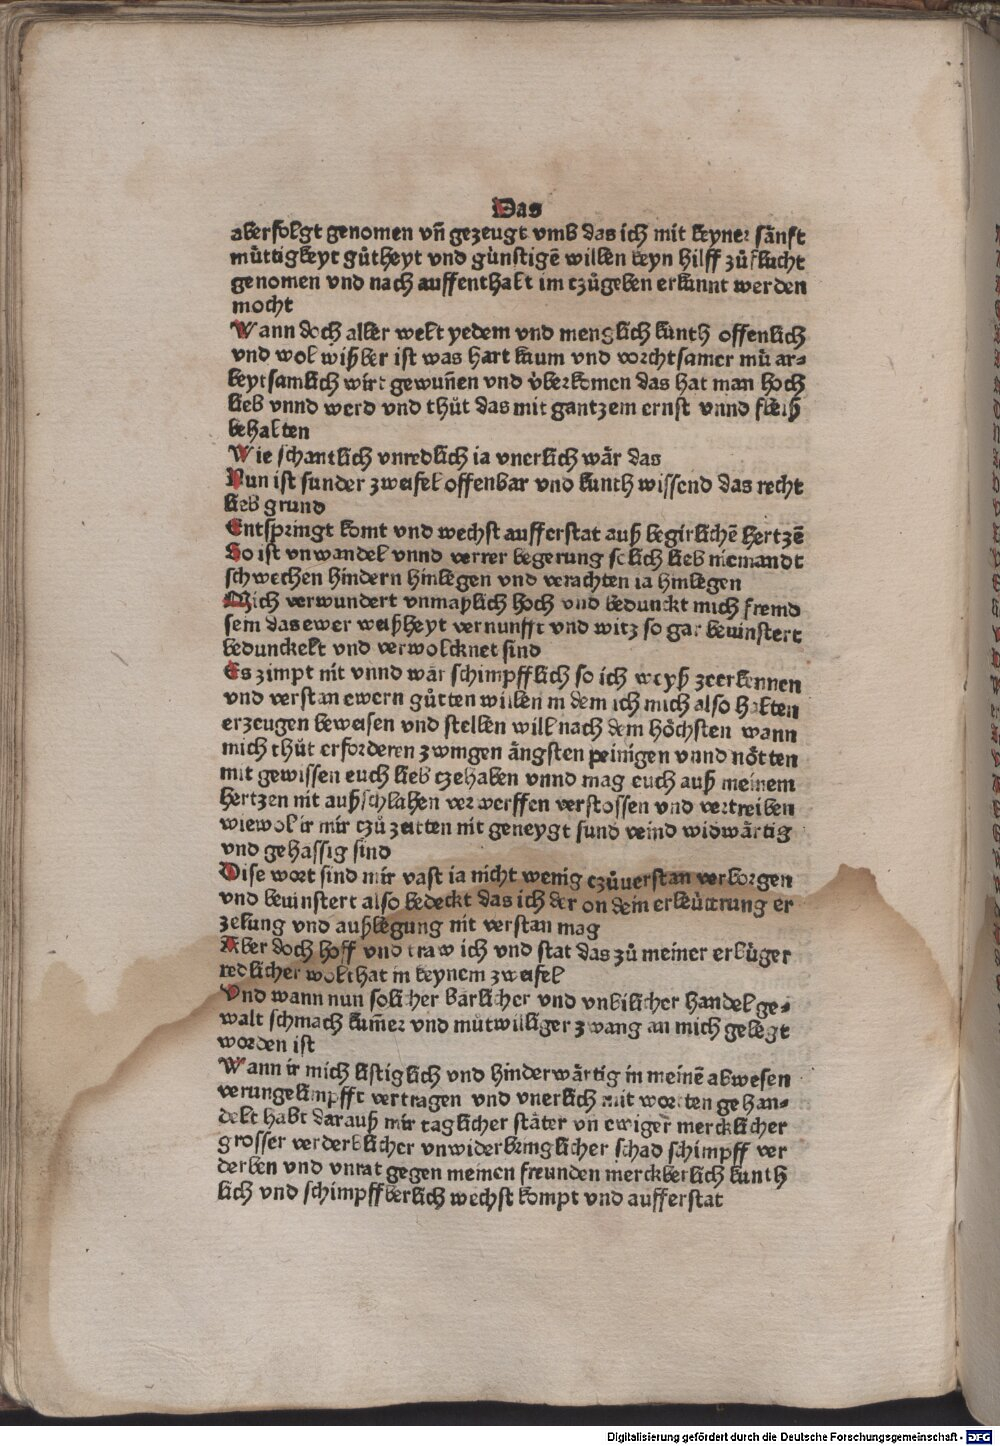 Das
aberfolgt genomen vn̄ gezeugt vmb das ich mit keyner sånft
můttigkeyt gůtheyt vnd günstigē willen keyn hilff zůflucht
genomen vnd nach auffenthalt im czůgeben erkunnt werden
mocht
Wann doch aller welt yedem vnd menglich kunth offenlich
vnd wol wißber ist was hart kaum vnd vorchtsamer mů ar-
beytsamlich wirt gewun̄en vnd v̊berkomen das hat man hoch
lieb vnnd werd vnd thůt das mit gantzem ernst vnnd fleiß
behalten
Wie schantlich vnredlich ia vnerlich wår das
Nun ist sunder zweifel offenbar vnd kunth wissend das recht
lieb grund
Entspringt komt vnd wechst aufferstat auß begirlichē hertzē
So ist vnwandel vnnd verrer begerung solich lieb niemandt
schwechen hindern hinlegen vnd verachten ia hinlegen
Mich verwundert vnmaßlich hoch vnd bedunckt mich fremd
sein das ewer weißheyt vernunfft vnd witz so gar beuinstert
bedunckelt vnd verwolcknet sind
Es zimpt nit vnnd wår schimpfflich so ich weyß zeerkennen
vnd verstan ewern gůtten willen in dem ich mich also halten
erzeugen beweisen vnd stellen will nach dem höchsten wann
mich thůt erforderen zwingen ångsten peinigen vnnd nötten
mit gewissen euch lieb czehaben vnnd mag euch auß meinem
hertzen nit außschlahen verwerffen verstossen vnd vertreiben
wiewol ir mir czů zeitten nit geneygt sund veind widwårtig
vnd gehassig sind
Dise wort sind mir vast ia nicht wenig czůuerstan verborgen
vnd beuinstert also bedeckt das ich der on dein erleůttrung er
zelung vnd außlegung nit verstan mag
Aber doch hoff vnd traw ich vnd stat das zů meiner erbüger
redlicher wolthat in keynem zweifel
Vnd wann nun solicher bårlicher vnd vnbilicher handel ge-
walt schmach kum̄er vnd můtwilliger zwang an mich gelegt
worden ist
Wann ir mich listiglich vnd hinderwårtig in meinē abwesen
verungelimpfft vertragen vnd vnerlich mit wortten gehan-
delt habt darauß mir taglicher ståter vn̄ ewiger mercklicher
grosser verderblicher vnwiderbringlicher schad schimpff ver
derben vnd vnrat gegen meinen freunden merckberlich kunth
lich vnd schimpffberlich wechst kompt vnd aufferstat
Digitalisierung gefördert durch die Deutsche Forschungsgemeinschaft - DFG